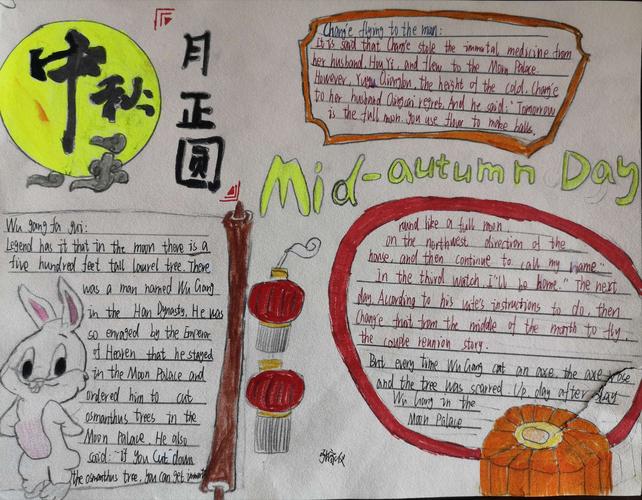 中秋
月正圆
Chang'e flying to the moon:
It is said that Chang'e stole the immortal medicine from
her husband, Hou Yi, and flew to the Moon Palace.
However, the height of the cold, Chang'e
to her husband regret. And he said: "Tomorrow
is the full moon, you use flour to make balls,
Mid-autumn Day
Wu gang fa gui:
Legend has it that in the moon there is a
five hundred feet tall laurel tree. There
was a man named Wu Gang
in the Han Dynasty. He was
so enraged by the Emperor
of Heaven that he stayed
in the Moon Palace and
ordered him to cut
osmanthus trees in the
Moon Palace. He also
said: "if you cut down
the osmanthus tree, you can get
round like a full moon
on the northwest direction of the
house, and then continue to call my name."
In the third watch, i'll be home." The next
day, According to his wife's instructions to do, then
Chang'e that from the middle of the month to fly,
the couple reunion story.
But every time Wu Gang cut an axe, the axe rose
and the tree was scarred up, day after day
Wu Gang in the
Moon Palace